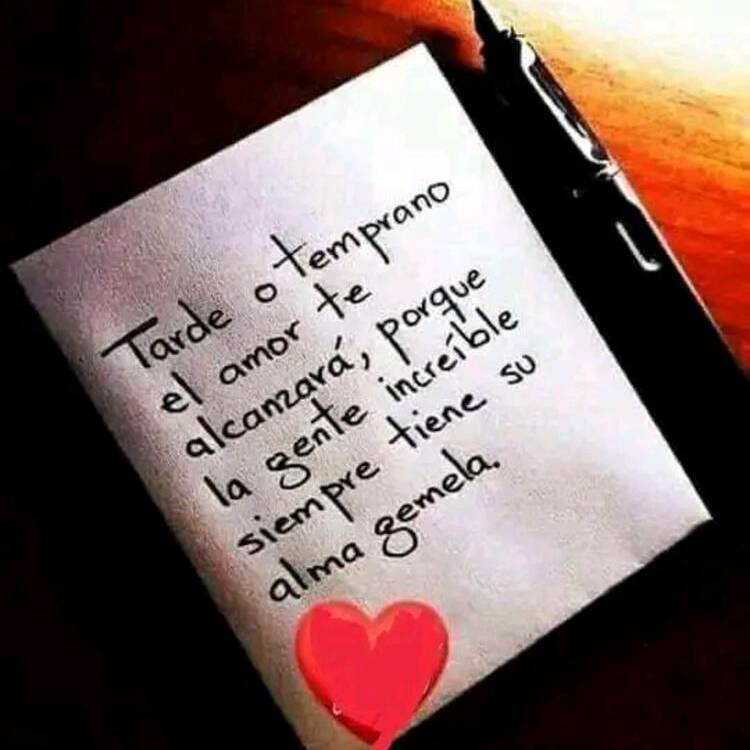 Tarde o temprano
el amor te
alcanzará, porque
la gente increíble
siempre tiene su
alma gemela.